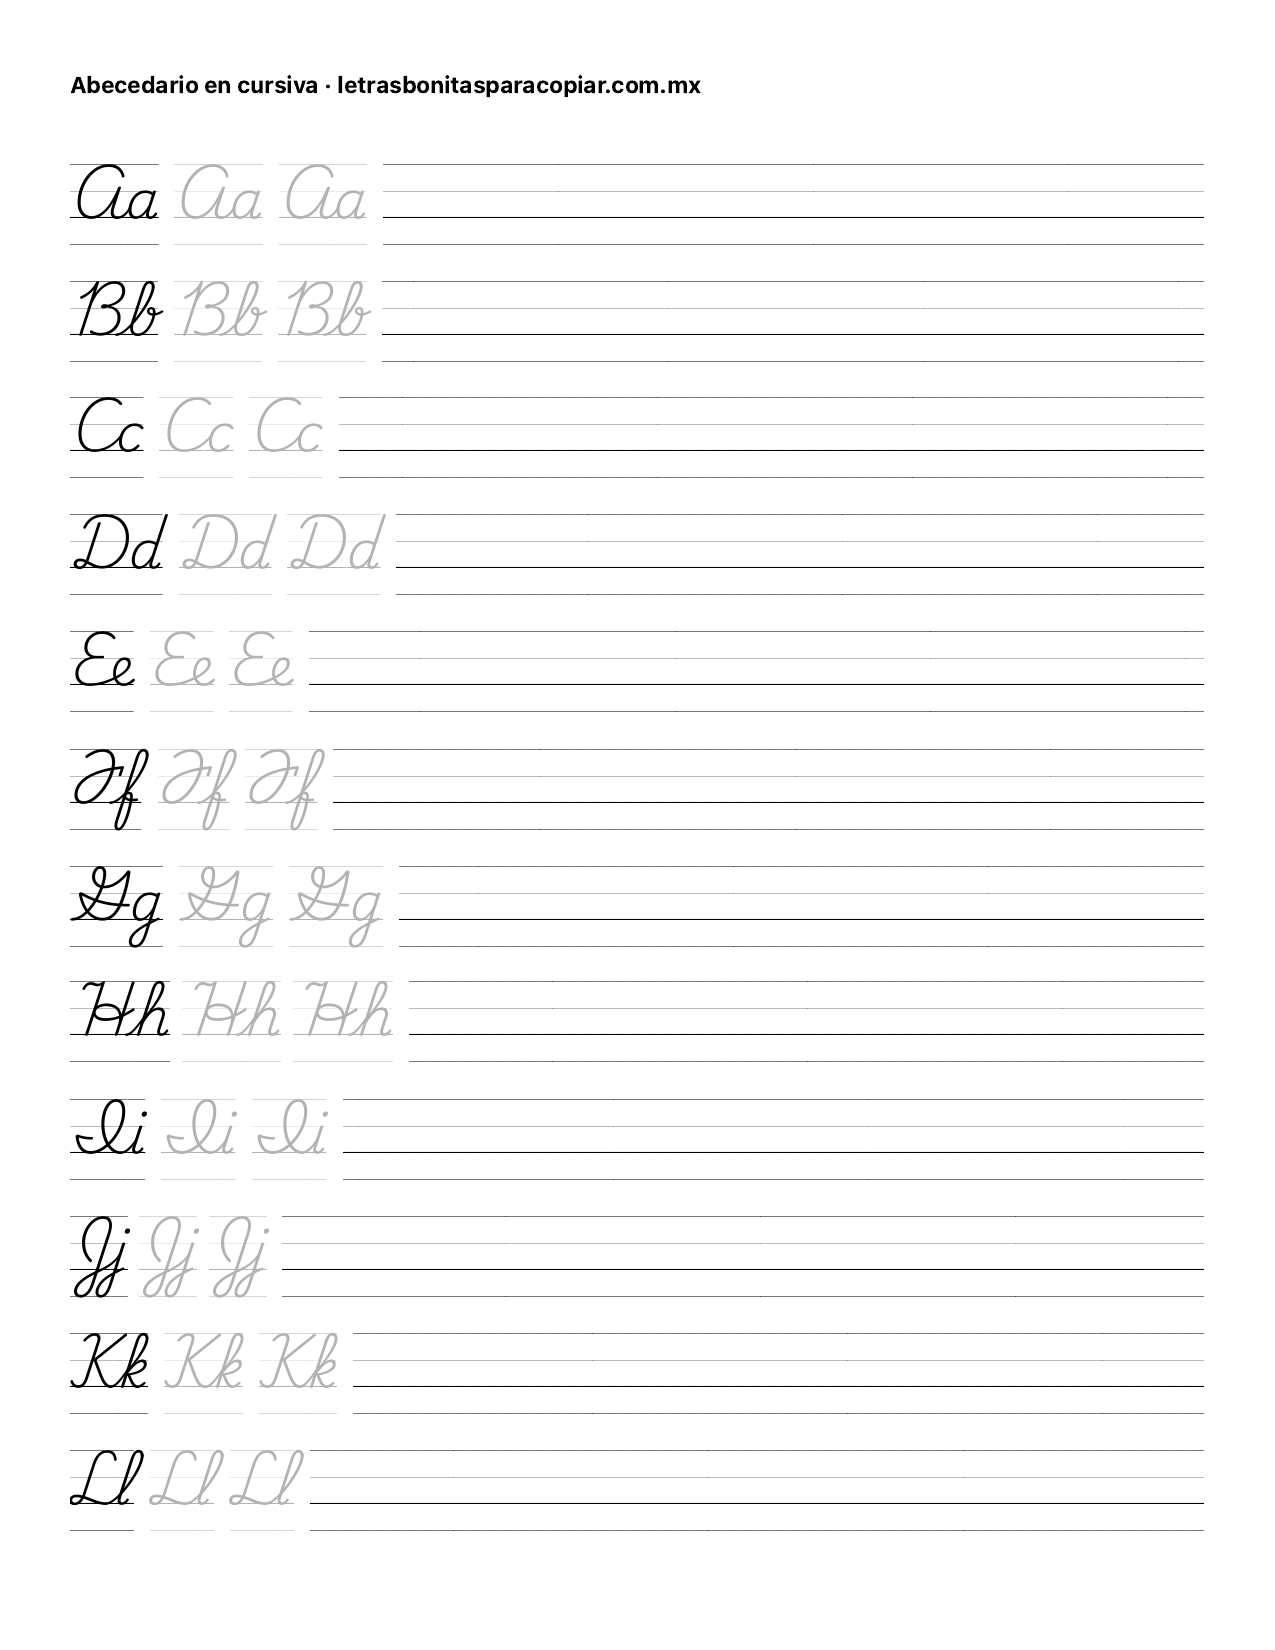 Abecedario en cursiva · letrasbonitasparacopiar.com.mx
Aa Aa Aa
Bb Bb Bb
Cc Cc Cc
Dd Dd Dd
Ee Ee Ee
Ff Ff Ff
Gg Gg Gg
Hh Hh Hh
Ii Ii Ii
Jj Jj Jj
Kk Kk Kk
Ll Ll Ll